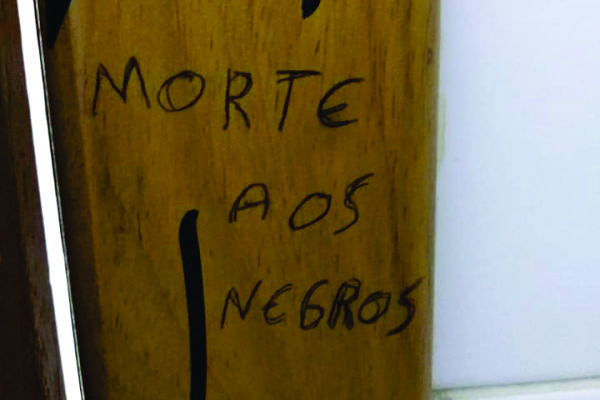 MORTE
AOS
NEGROS